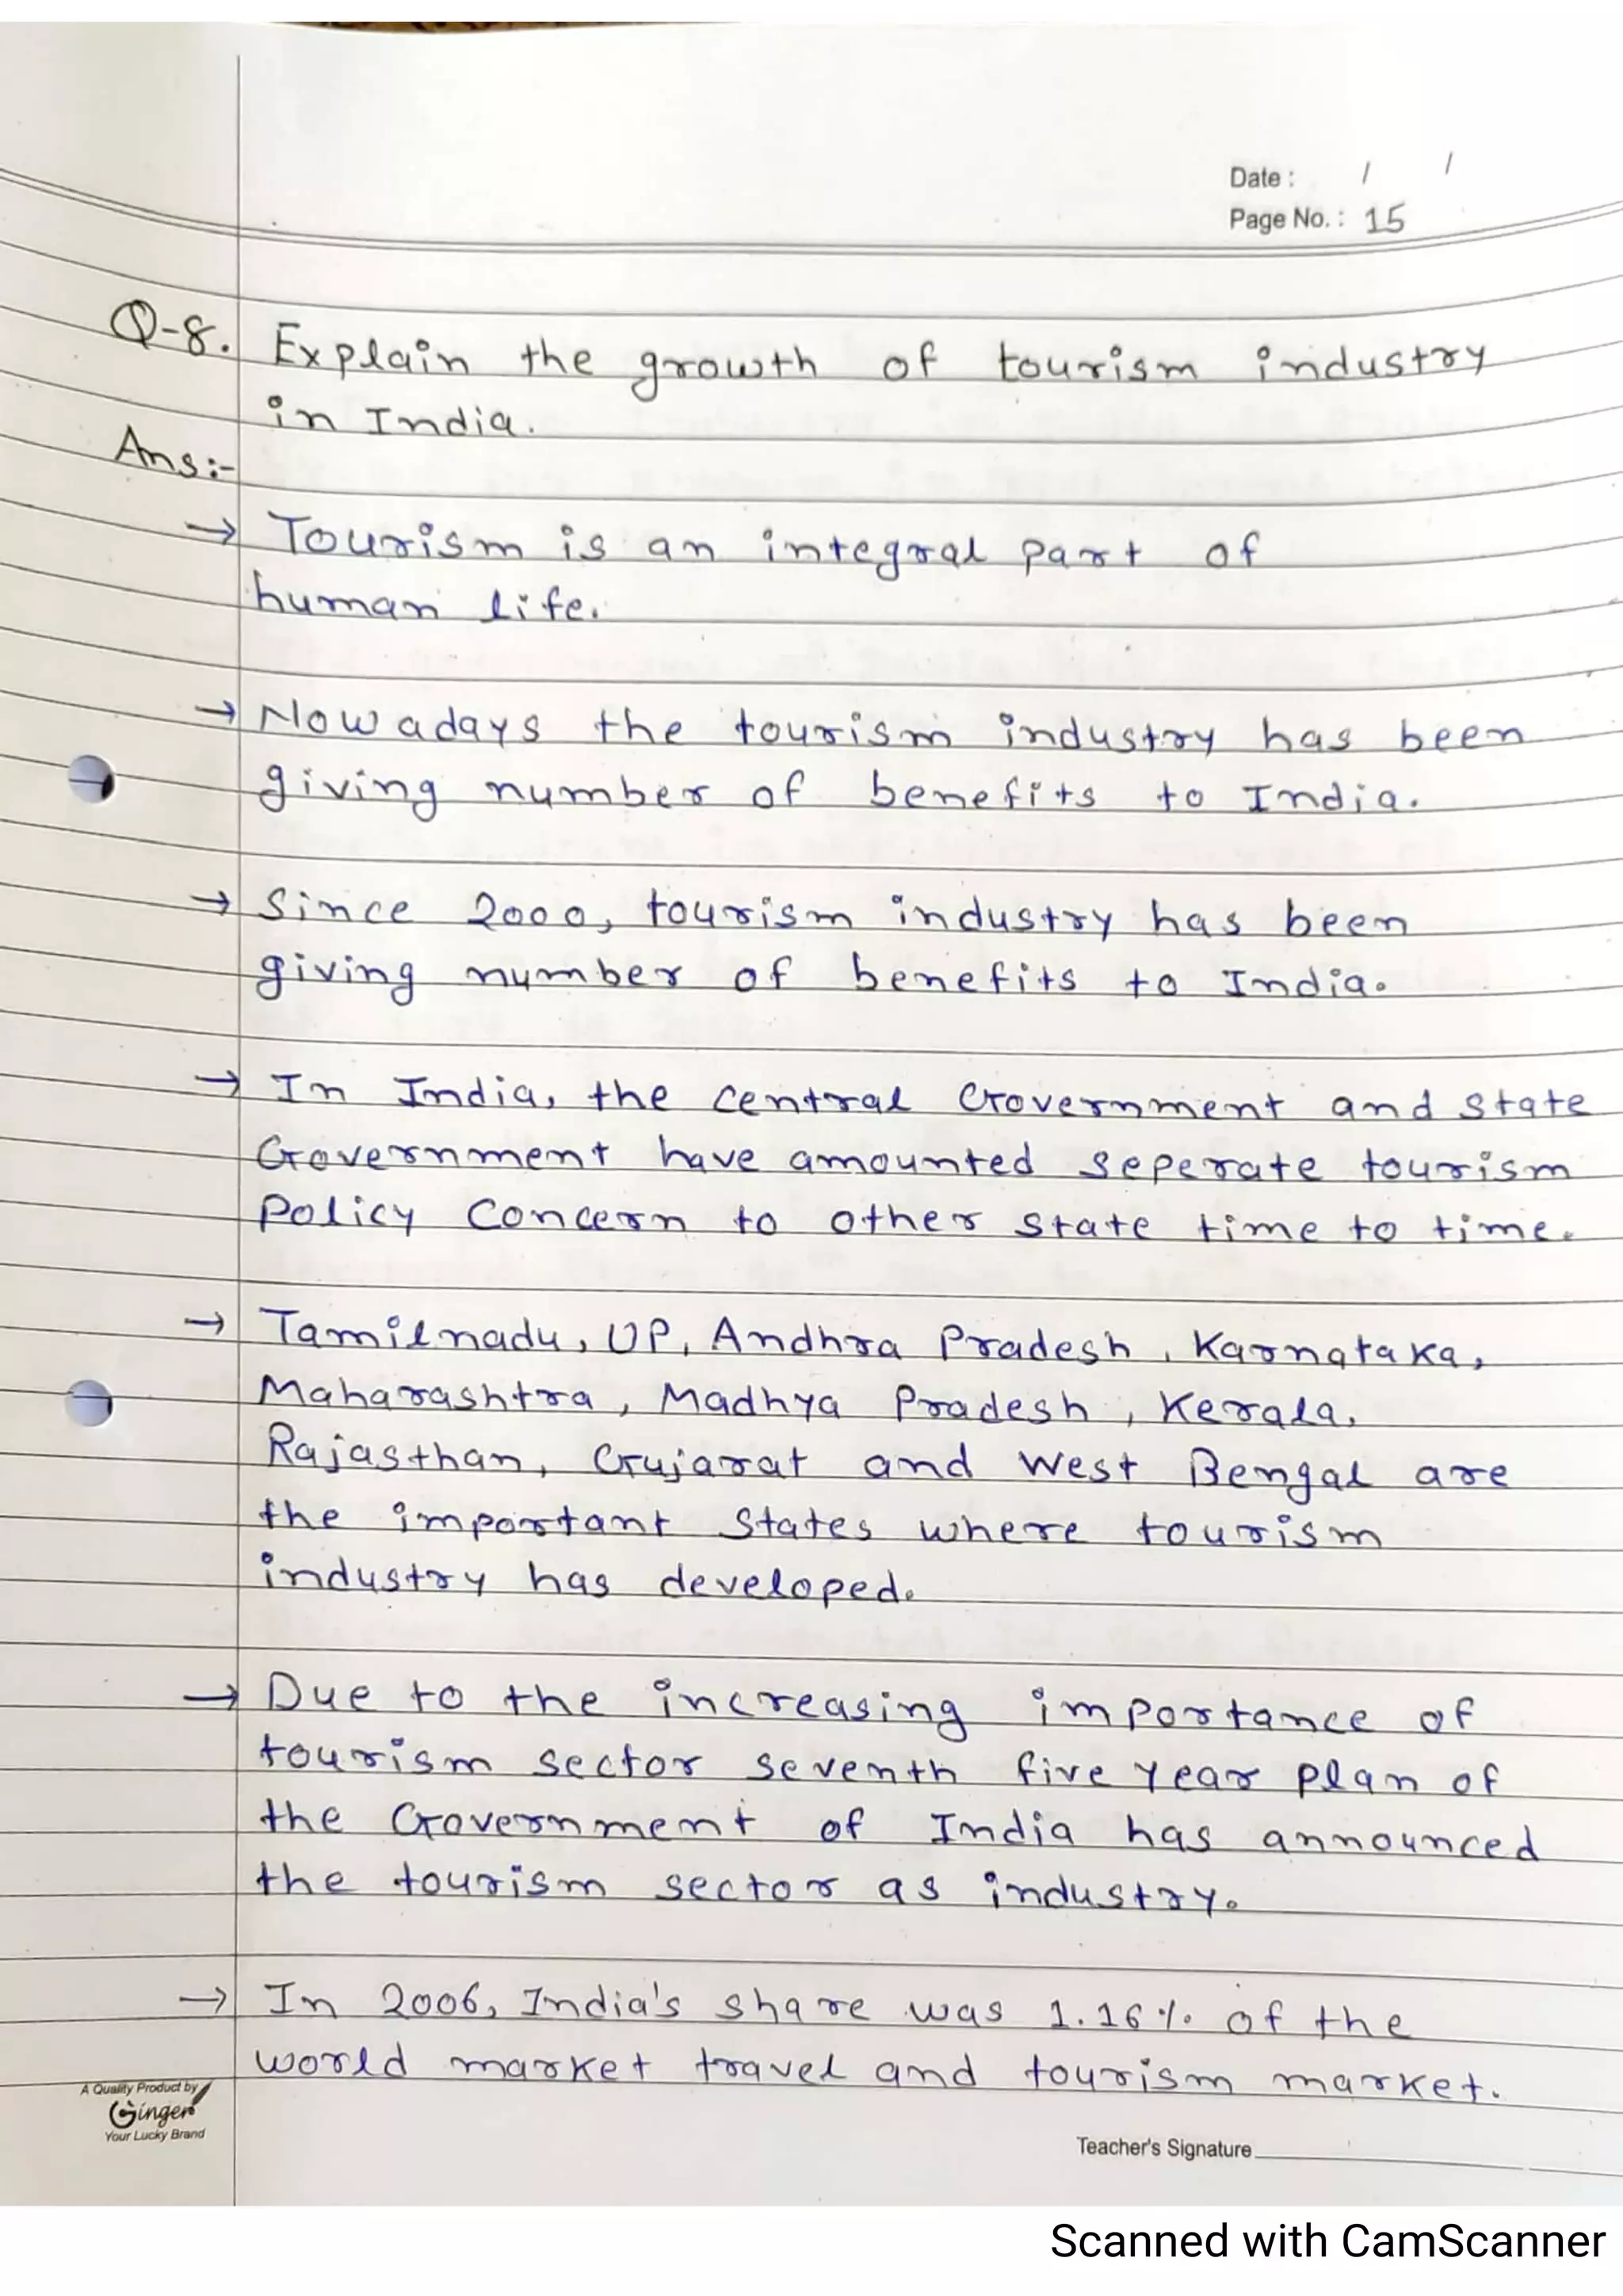 Date : / /
Page No. : 15
Q-8. Explain the growth of tourism industry
in India.
Ans:-
→ Tourism is an integral part of
human life.
→ Now adays the tourism industry has been
giving number of benefits to India.
→ Since 2000, tourism industry has been
giving number of benefits to India.
→ In India, the central Government and state
Government have amounted seperate tourism
Policy Concern to other state time to time.
→ Tamilnadu, UP, Andhra Pradesh, Karnataka,
Maharashtra, Madhya Pradesh, Kerala,
Rajasthan, Gujarat and West Bengal are
the important states where tourism
industry has developed.
→ Due to the increasing importance of
tourism sector seventh five year plan of
the Government of India has announced
the tourism sector as industry.
→ In 2006, India's share was 1.16% of the
world market travel and tourism market.
A Quality Product by
Ginger
Your Lucky Brand
Teacher's Signature
Scanned with CamScanner